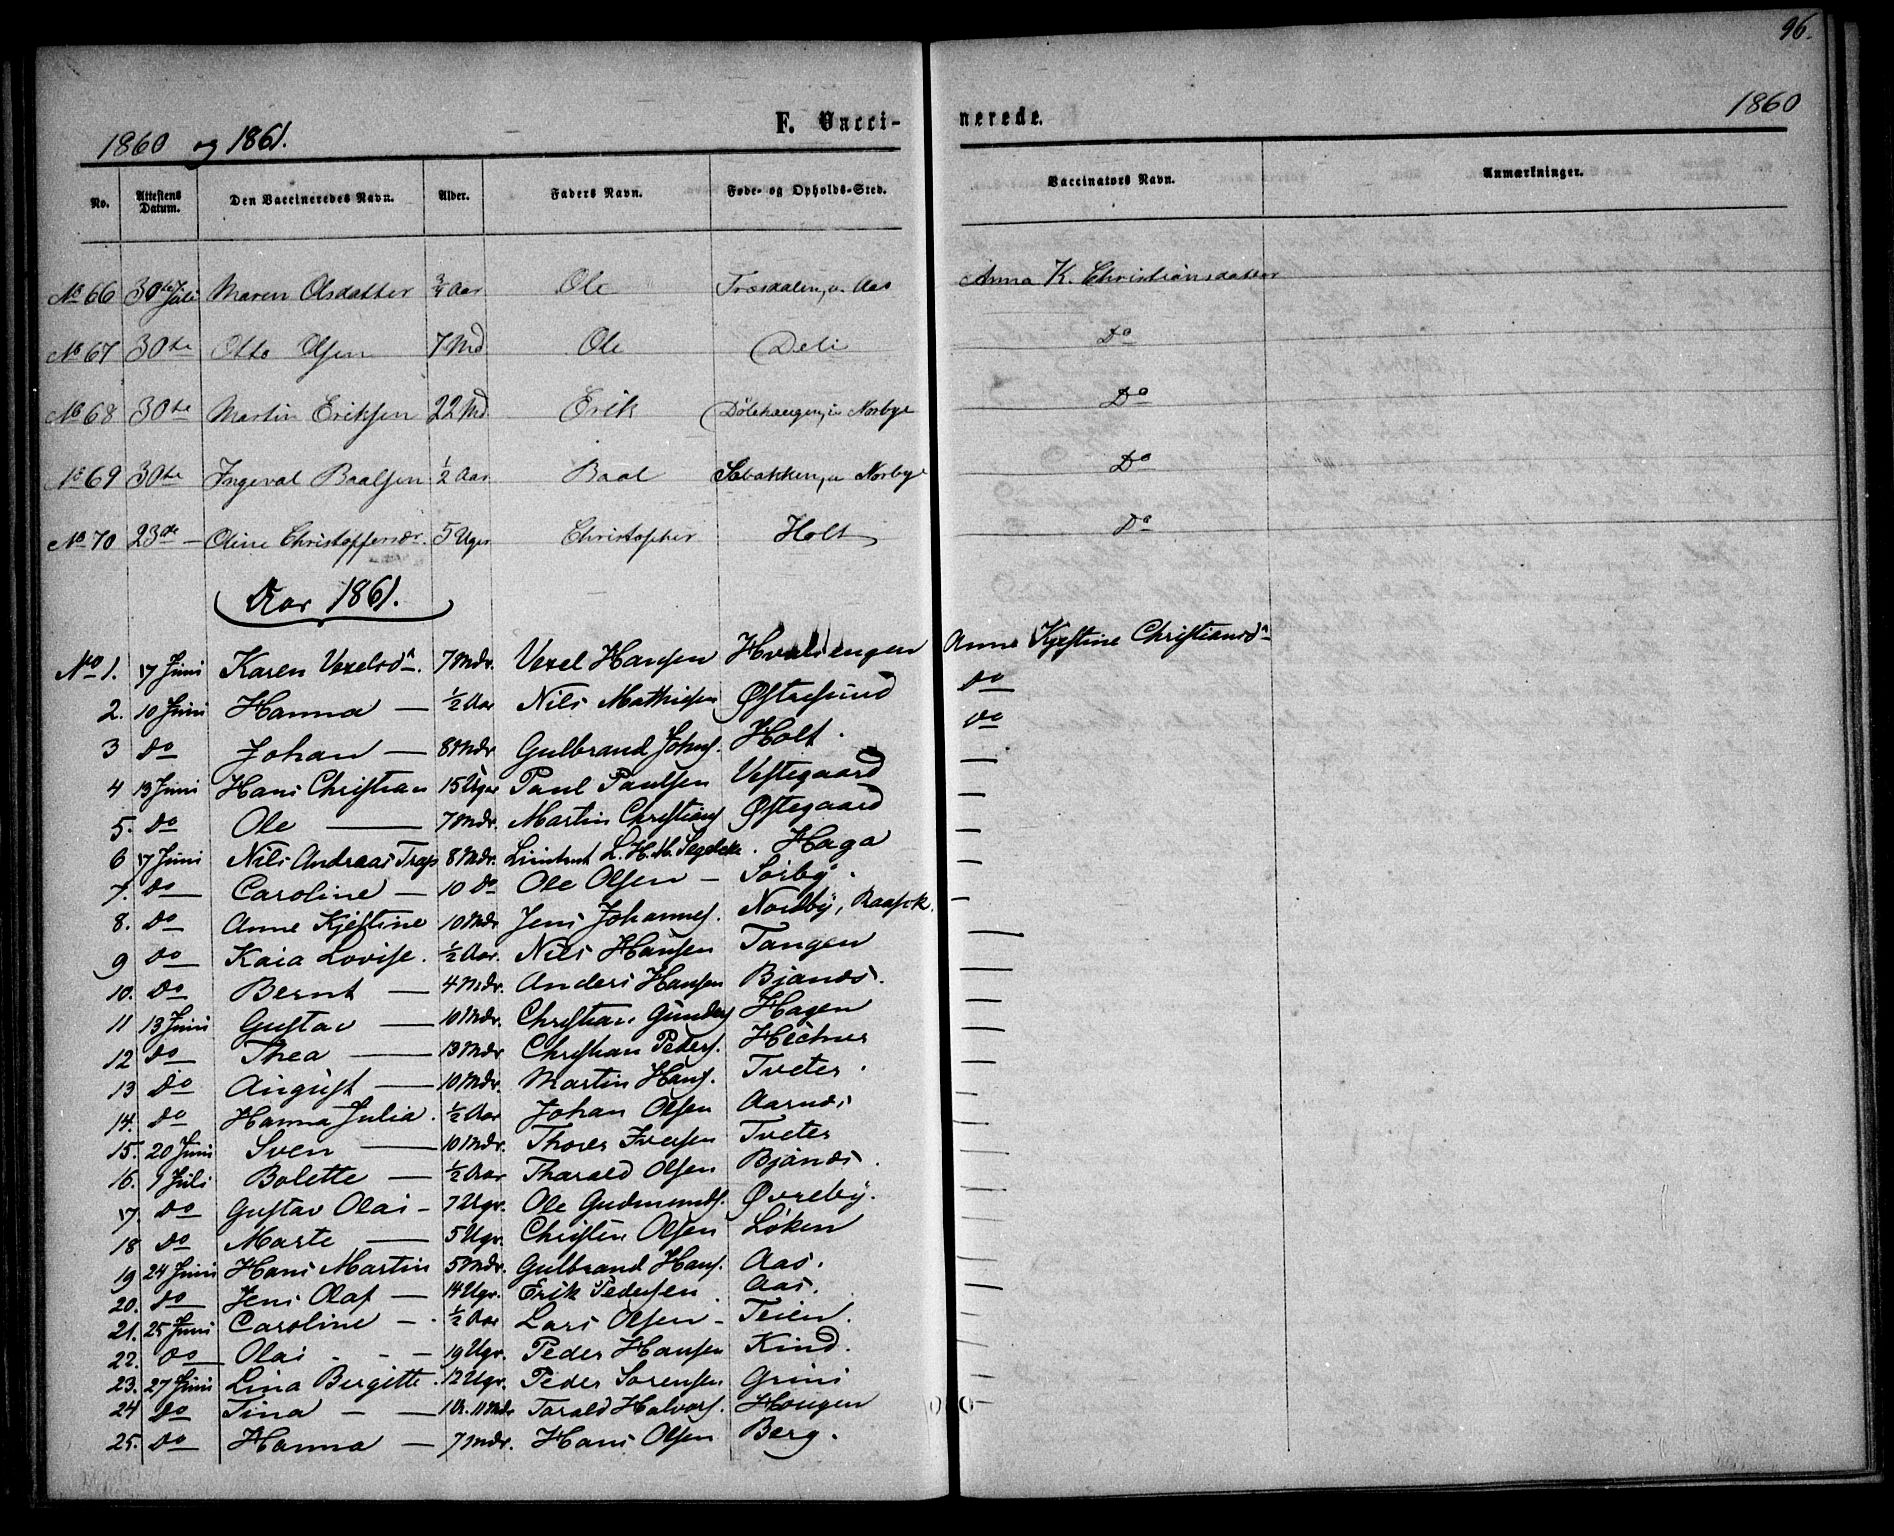 96.
1860 og 1861. F. Vacci- nerede. 1860
No. Attestens Datum. Den Vaccineredes Navn. Alder. Faders Navn. Føde- og Opholds-Sted. Vaccinators Navn. Anmærkninger.
No 66 30te Juli Maren Olsdatter 3/4 Aar Ole Træsdalen, u. Aas Anna K. Christiansdatter
No 67 30te Otto Olsen 7 Md Ole Deli Do
No 68 30te Martin Eriksen 22 Md. Erik Dölehaugen, u. Norbye Do
No 69 30te Ingeval Baalsen 1/2 Aar Baal Sobakken, u Norbye Do
No 70 23de - Oline Christoffersdr. 5 Uger Christopher Holt Do
Aar 1861.
No 1. 17 Juni Karen Vexelsd. 7 Mdr. Vexel Hansen Anne Kjestine Christiansd
2. 10 Juni Hanna — 1/2 Aar Nils Mathisen Østresund do
3 do Johan — 8 Mdr Gulbrand Johns. Holt. do
4 13 Juni Hans Christian 15 Uger Paul Paulsen Vestegaard —
5. do Ole — 7 Mdr. Martin Christians Østegaard —
6 17 Juni Nils Andreas Trap 8 Mdr. L. H. M. Segelcke. Haga —
7. do Caroline — 10 do Ole Olsen — Sörby. —
8. do Anne Kjestine 10 Mdr Jens Johannes. Nordby, Raask. —
9 do Kaia Lovise. 1/2 Aar. Nils Hansen Tangen —
10. do Bernt — 4 Mdr. Anders Hansen Bjanæs. —
11 13 Juni Gustav — 10 Mdr. Christian Gunders Hagen —
12 do Thea — 13 Mdr Christian Peders. —
13 do August — 10 Mdr. Martin Hans. Tveter. —
14. do Hanna Julia. 1/2 Aar Johan Olsen Aarnæs —
15. 20 Juni Sven — 10 Mdr Thores Iversen Tveter —
16. 9 Juli Bolette — 1/2 Aar Tharald Olsen Bjånæs. —
17. do Gustav Olai — 7 Ugr. Ole Gudmunds. Øvreby. —
18 do Marte — 5 Ugr. Christen Olsen Løken —
19 24 Juni Hans Martin 5 Mdr. Gulbrand Hans. Aas. —
20. do Jens Olaf — 14 Ugr. Erik Pedersen. Aas. —
21. 25 Juni Caroline — 1/2 Aar Lars Olsen — Teien. —
22. do Olai — — 19 Ugr. Peder Hansen Kind. —
23. 27 Juni Lina Bergitte. 12 Ugr. Peder Sorensen Grini —
24 do Tina — — 1 A. 11 Mdr Torald Halvors. Hougen —
25. do Hanna — 7 Mdr. Hans Olsen Berg.